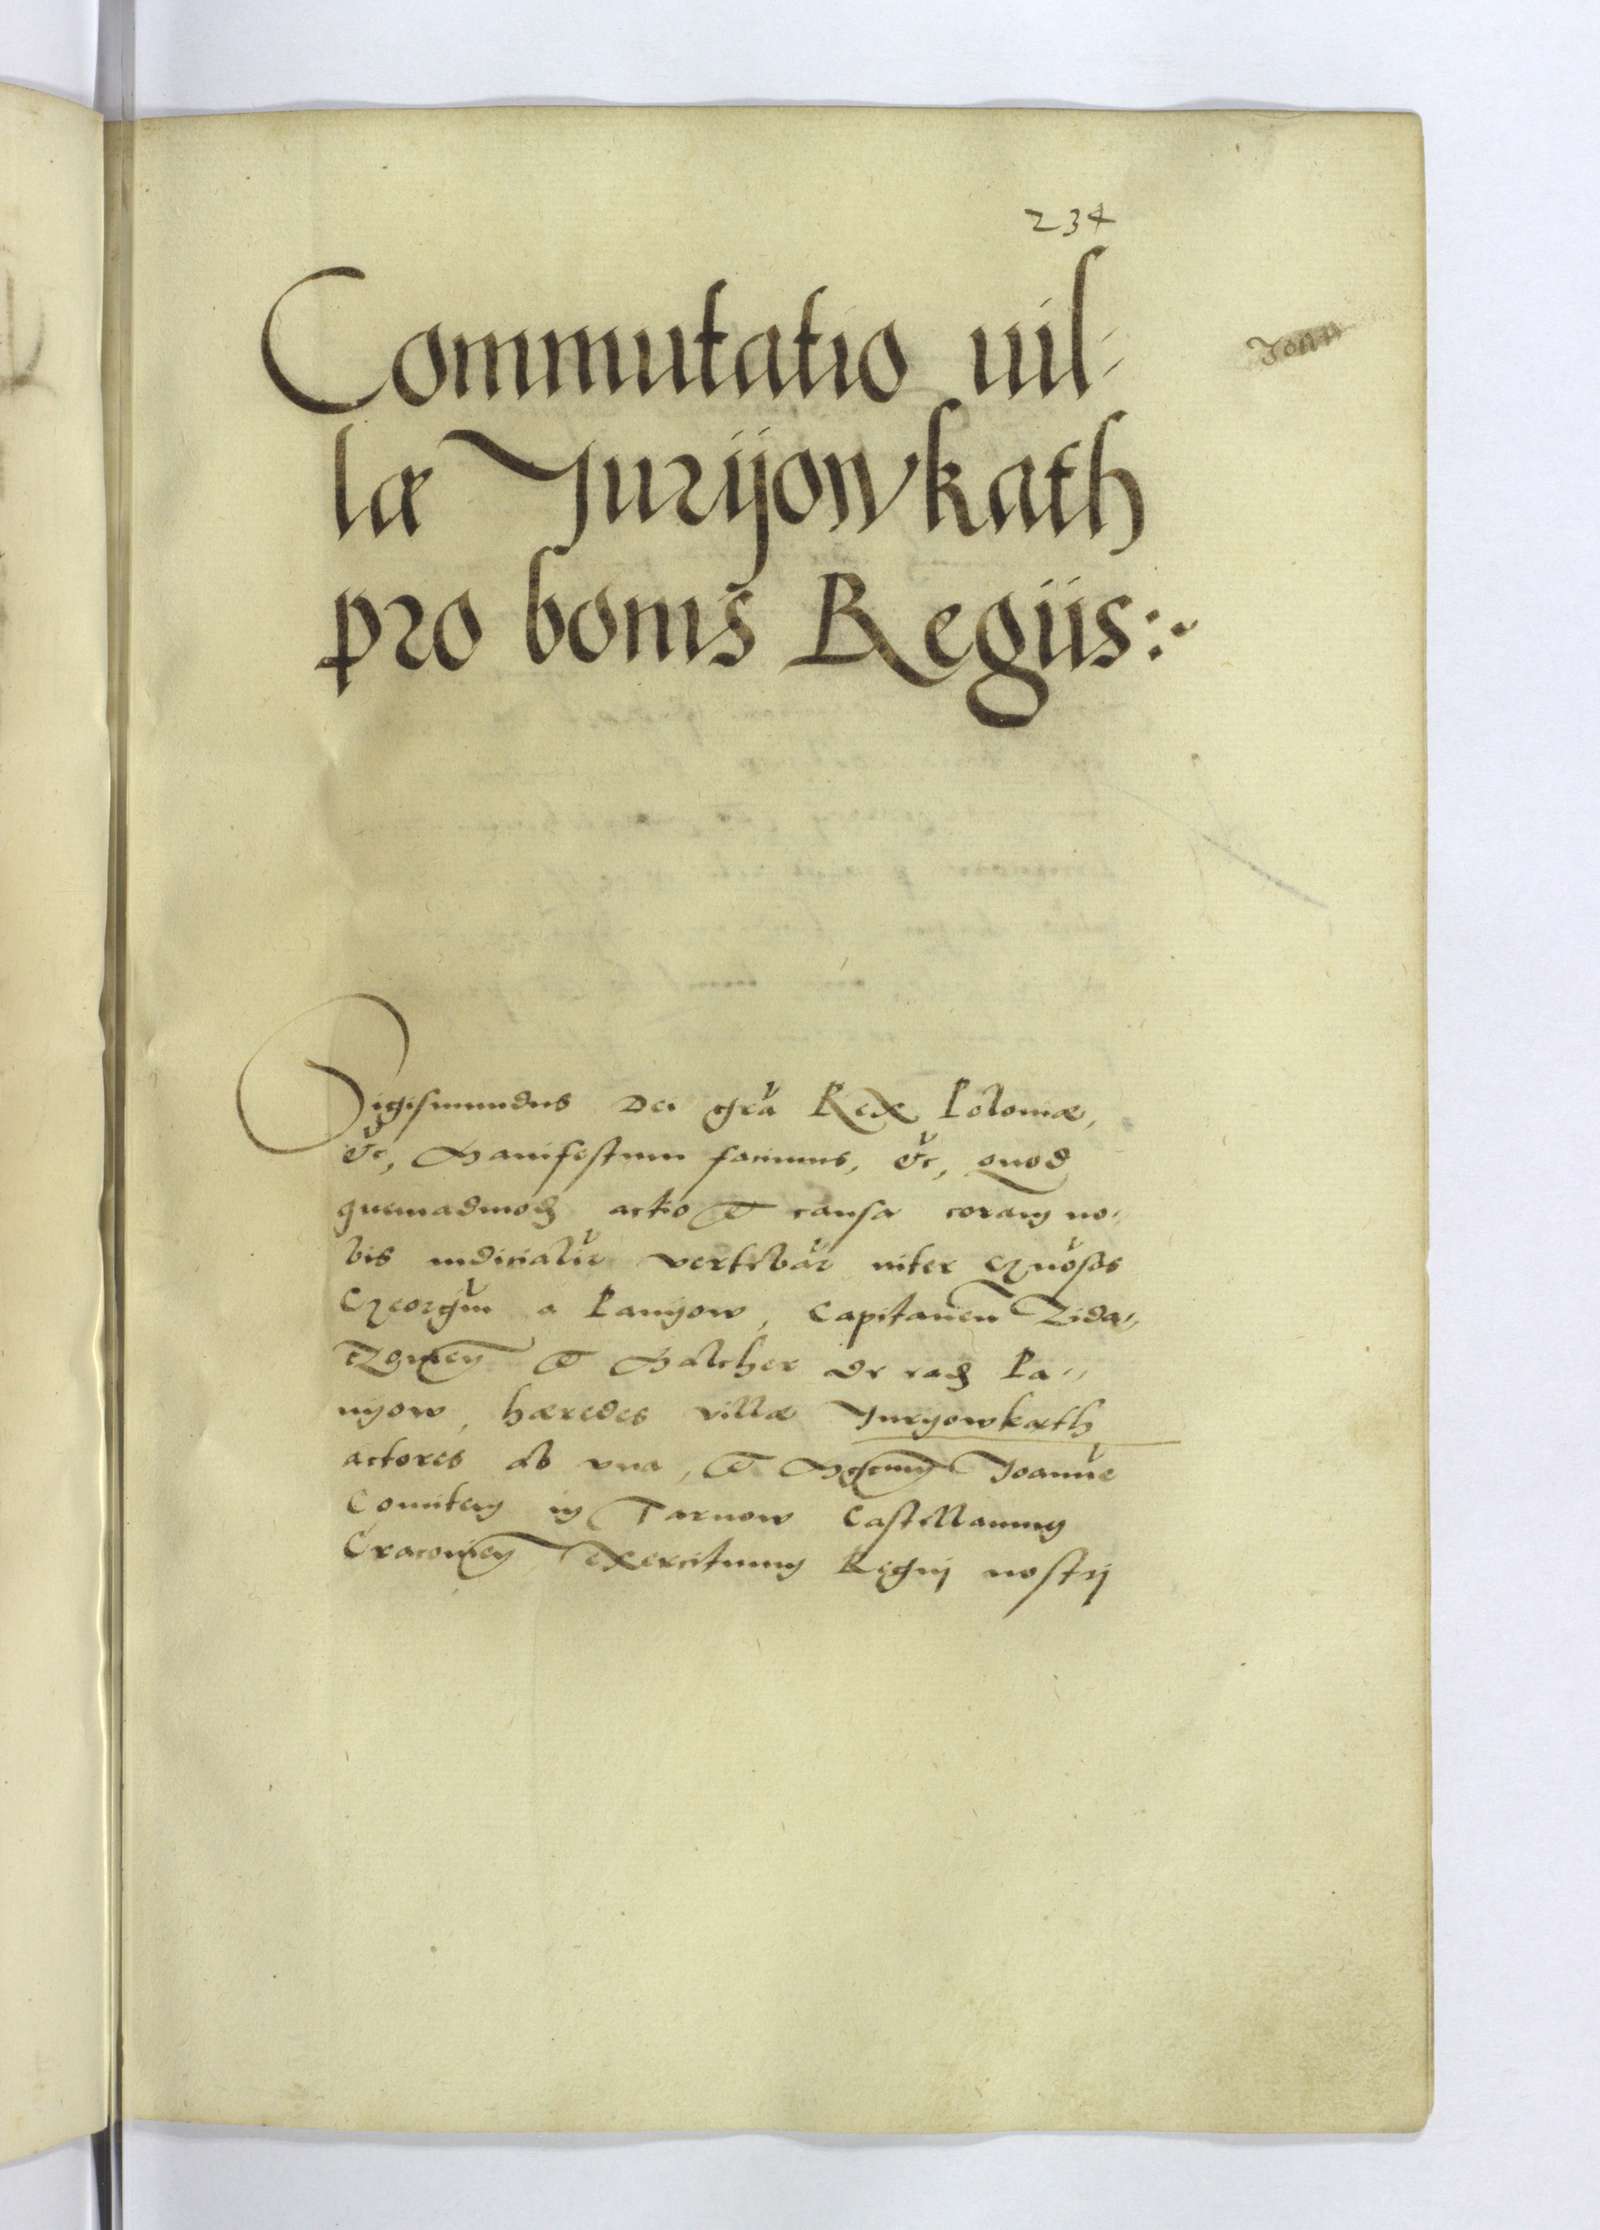 234
Commutatio uil-
læ Jurijowkath
pro bonis Regiis:~
Sigismundus Dei gra Rex Poloniæ,
&c, Manifestum facimus, &c, quod
quemadmodz actio & causa coram no-
bis iudicialr vertebatr inter Gnosos
Georgm a Panijow, Capitaneu Zida-
& Malcher de eadz Pa-
nijow, hæredes villæ Jurijowkath
actores ab vna, & Joanne
Comitem in Tarnow Castellanum
Cracovien exercituum Regnij nostrj